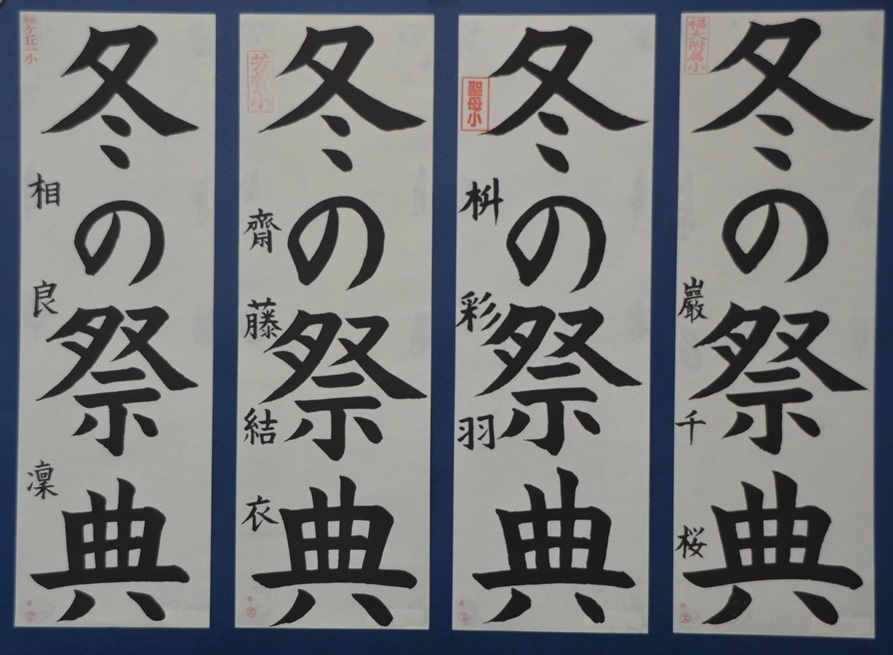 福大附属小
冬の祭典
巌千桜
聖母小
冬の祭典
枡彩羽
芳賀小
冬の祭典
齋藤結衣
緑ケ丘一小
冬の祭典
相良凜